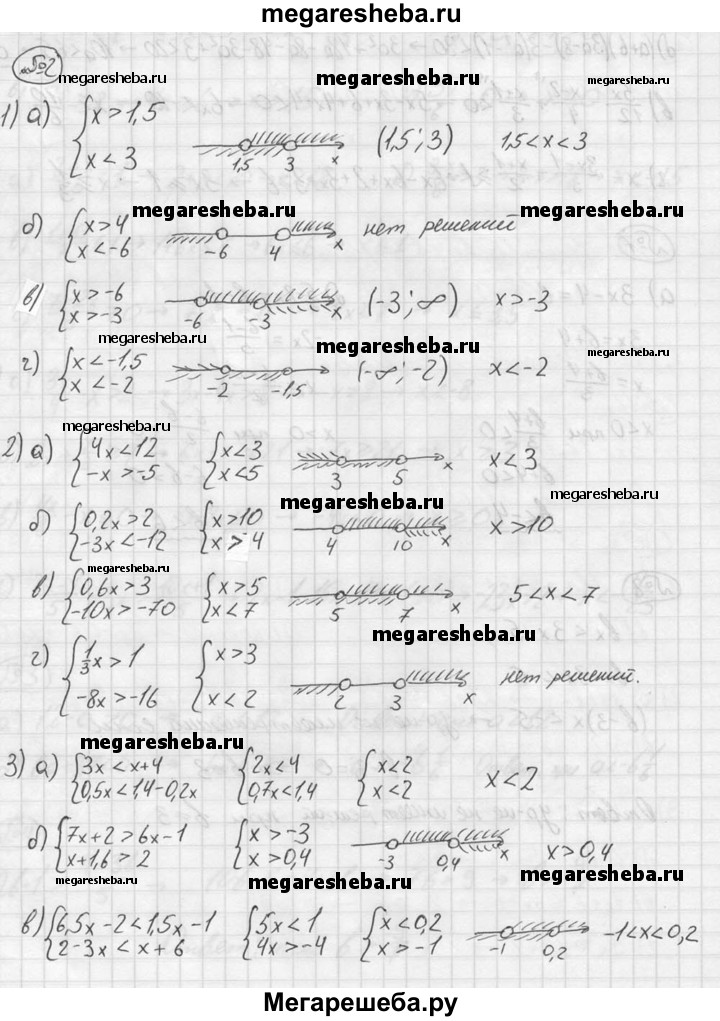 megaresheba.ru
№2
megaresheba.ru megaresheba.ru megaresheba.ru
1) а) { x > 1,5
x < 3 1,5 3 x (1,5; 3) 1,5 < x < 3
megaresheba.ru megaresheba.ru
б) { x > 4
x < -6 -6 4 x нет решений
в) { x > -6
x > -3 -6 -3 x (-3; ∞) x > -3
megaresheba.ru megaresheba.ru megaresheba.ru
г) { x < -1,5
x < -2 -2 -1,5 (-∞; -2) x < -2
megaresheba.ru
2) а) { 4x < 12 { x < 3
-x > -5 x < 5 3 5 x x < 3
megaresheba.ru megaresheba.ru
б) { 0,2x > 2 { x > 10
-3x < -12 x > 4 4 10 x x > 10
megaresheba.ru
в) { 0,6x > 3 { x > 5
-10x > -70 x < 7 5 7 x 5 < x < 7
megaresheba.ru
г) { 1/3 x > 1 { x > 3
-8x > -16 x < 2 2 3 x нет решений.
megaresheba.ru
3) а) { 3x < x + 4 { 2x < 4 { x < 2
0,5x < 1,4 - 0,2x 0,7x < 1,4 x < 2 x < 2
б) { 7x + 2 > 6x - 1 { x > -3
x + 1,6 > 2 x > 0,4 -3 0,4 x x > 0,4
megaresheba.ru megaresheba.ru megaresheba.ru
в) { 6,5x - 2 < 1,5x - 1 { 5x < 1 { x < 0,2
2 - 3x < x + 6 4x > -4 x > -1 -1 0,2 -1 < x < 0,2
Мегарешеба.ру